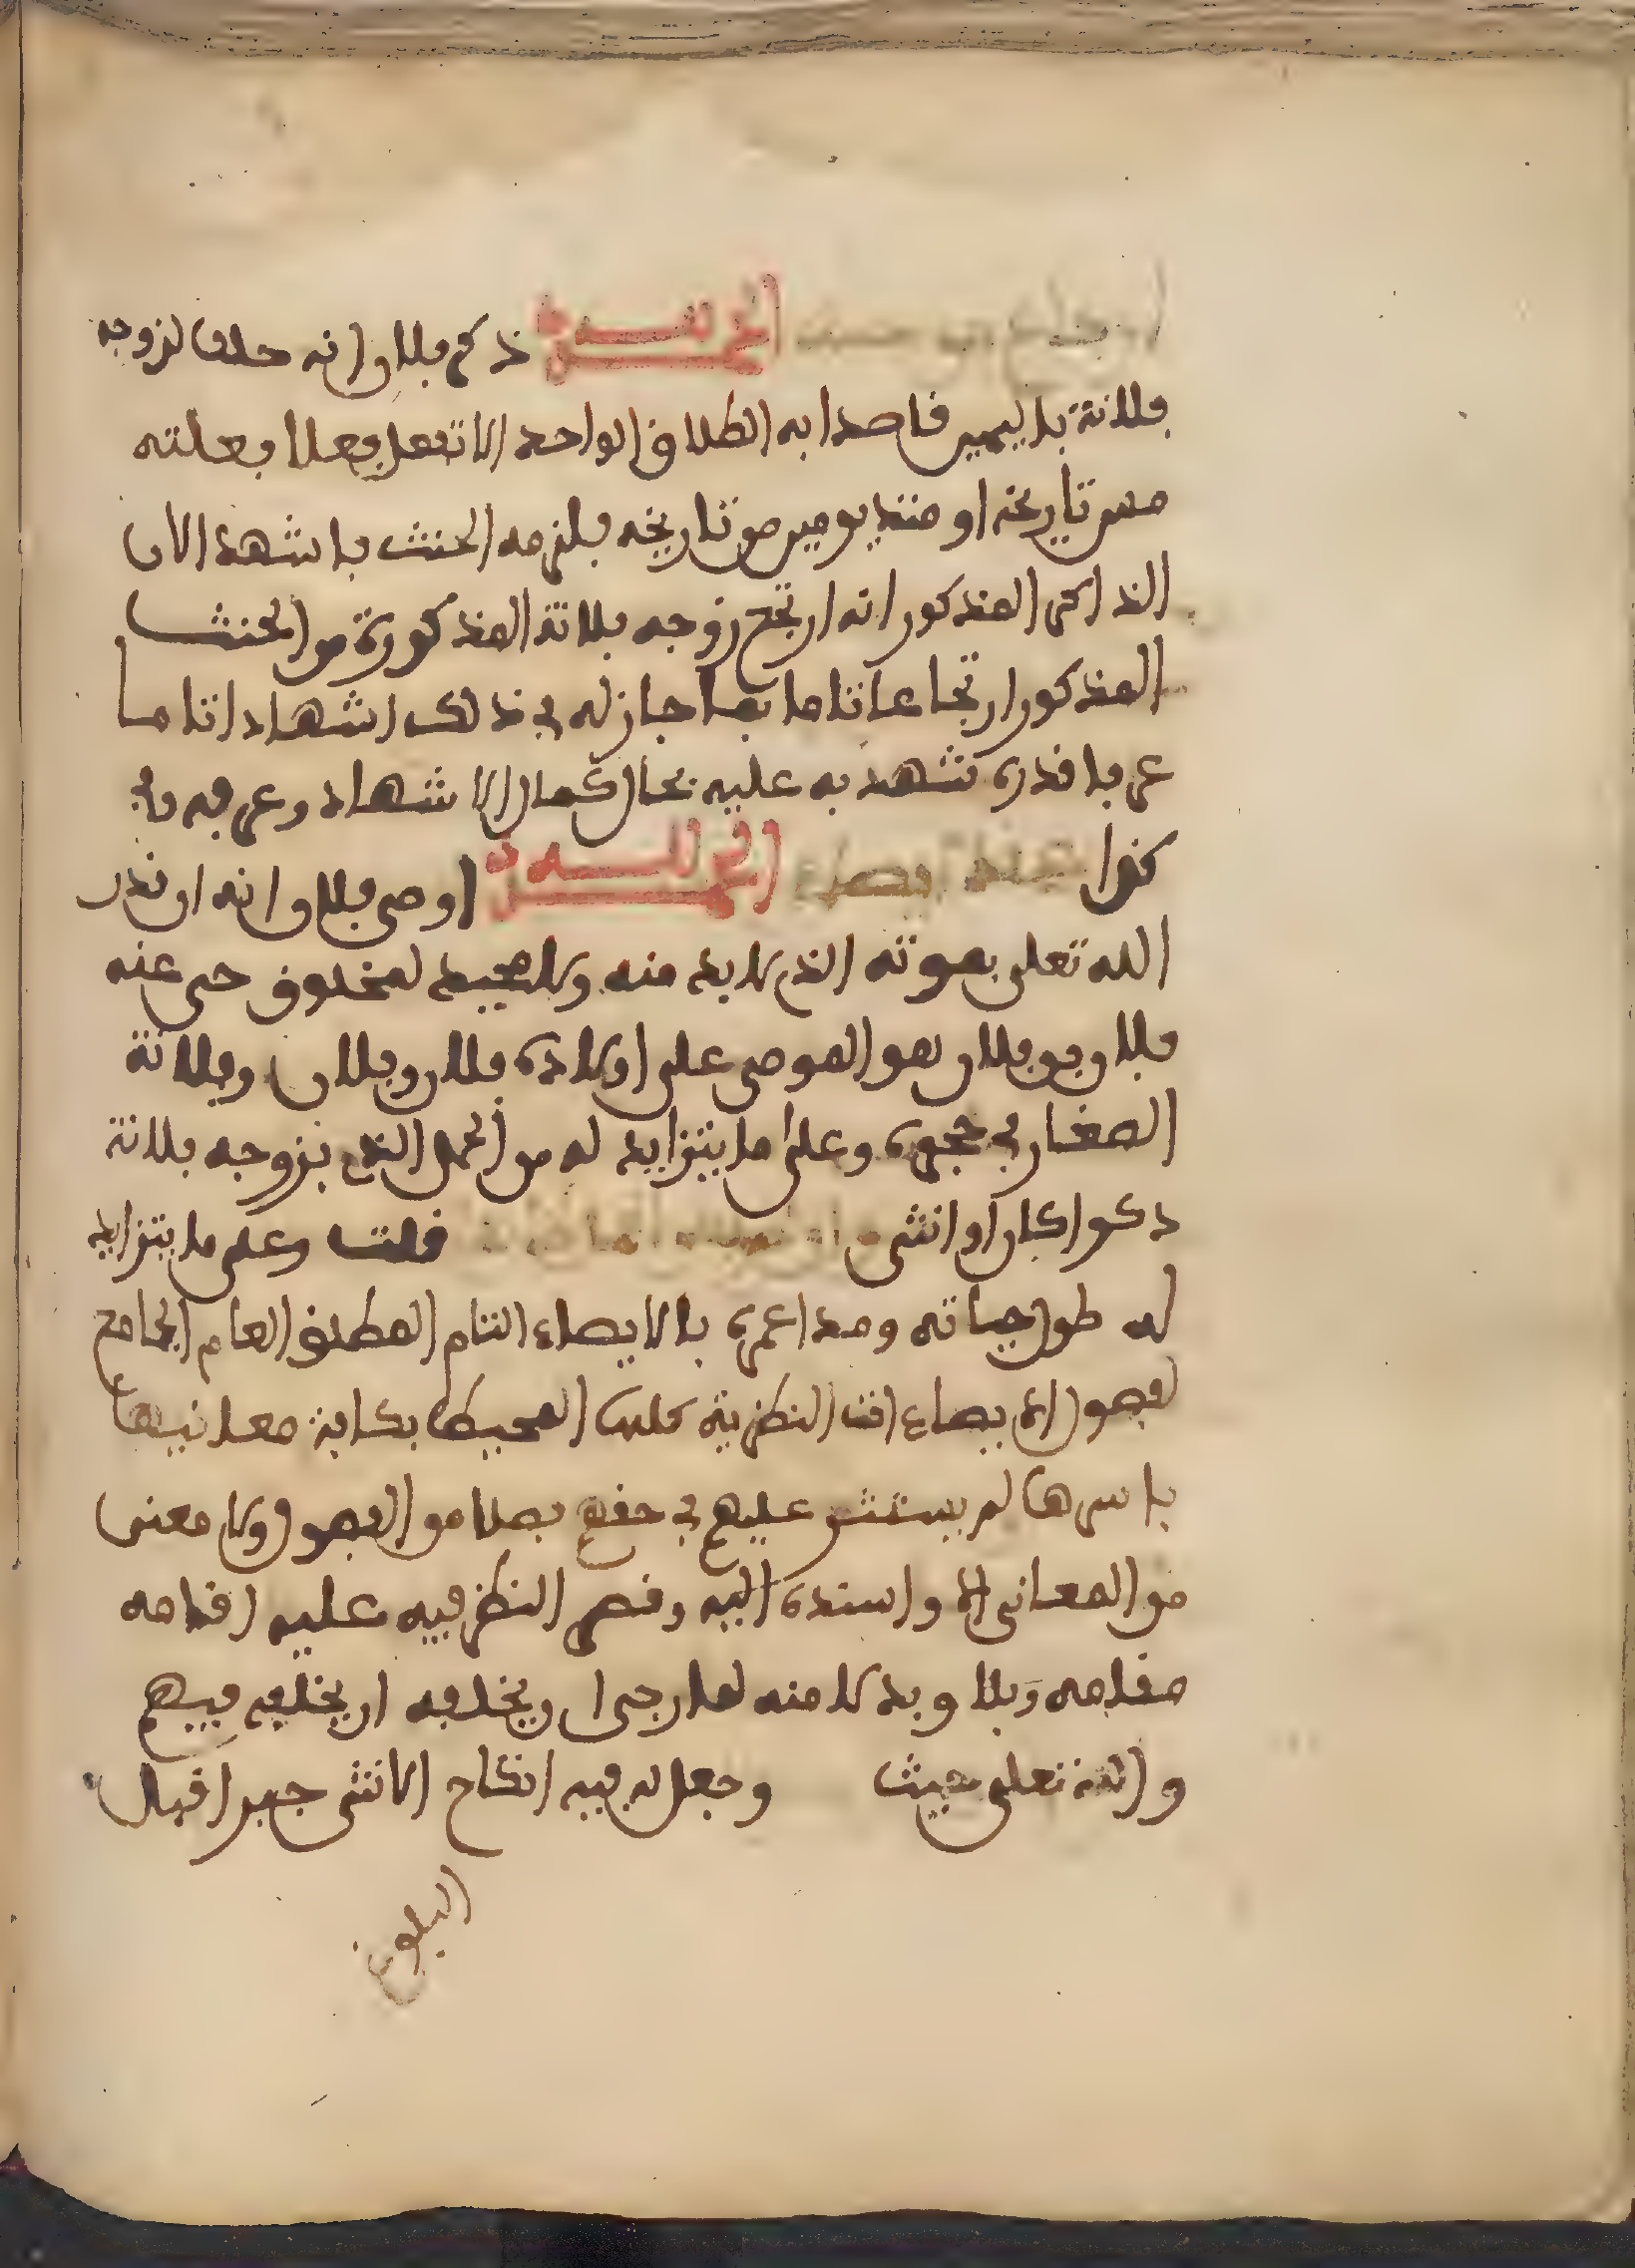 ارتجاع من حنث الحمد لله ذكر فلان انه حلف لزوجه
فلانة باليمين قاصدا به الطلاق الواحد الا تفعل فعلا ففعلته
من تاريخه او منذ يومين من تاريخه فلزمه الحنث فاشهد الان
الذاكر المذكور انه ارتجع زوجه فلانة المذكورة من الحنث
المذكور ارتجاعا تاما بما جاز له في ذلك اشهادا تاما
عرفا قدره شهد به عليه بحال كمال الاشهاد وعرفه في
كذا الحمد لله اوصى فلان انه ان قدر
الله تعلى بموته الذي لا بد منه ولا محيد لمخلوق حي عنه
فلان بن فلان هو الموصي على اولاده فلان وفلان وفلانة
الصغار في حجره وعلى ما يتزايد له من الحمل الذي بزوجه فلانة
ذكرا كان او انثى قلت وعلى ما يتزايد
له طول حياته ومدا عمره بالايصاء التام المطلق العام الجامع
لفصول الايصاءات النظرية كلها المحيط بكافة معانيها
باسرها لم يستثن عليهم في حقهم فصلا من الفصول ولا معنى
من المعاني الا واسنده اليه وقصر النظر فيه عليه اقامه
مقامه وبدلا منه لما رجى ان يخلفه ان يخلفه فيهم
والله تعلى حيث وجعل له فيه انكاح الانثى جبرا قبل
البلوغ